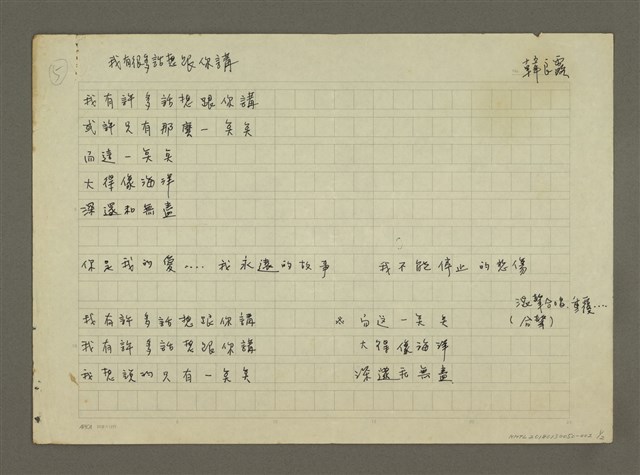 5
我有很多話想跟你講
韓良露
我有許多話想跟你講
或許只有那麼一點點
而這一點點
大得像海洋
深遠和無盡
你是我的愛....我永遠的故事 我不能停止的悲傷
我有許多話想跟你講
我有許多話想跟你講
我想說的只有一點點
而這一點點
大得像海洋
深遠和無盡
混聲合唱.重覆...
(合聲)